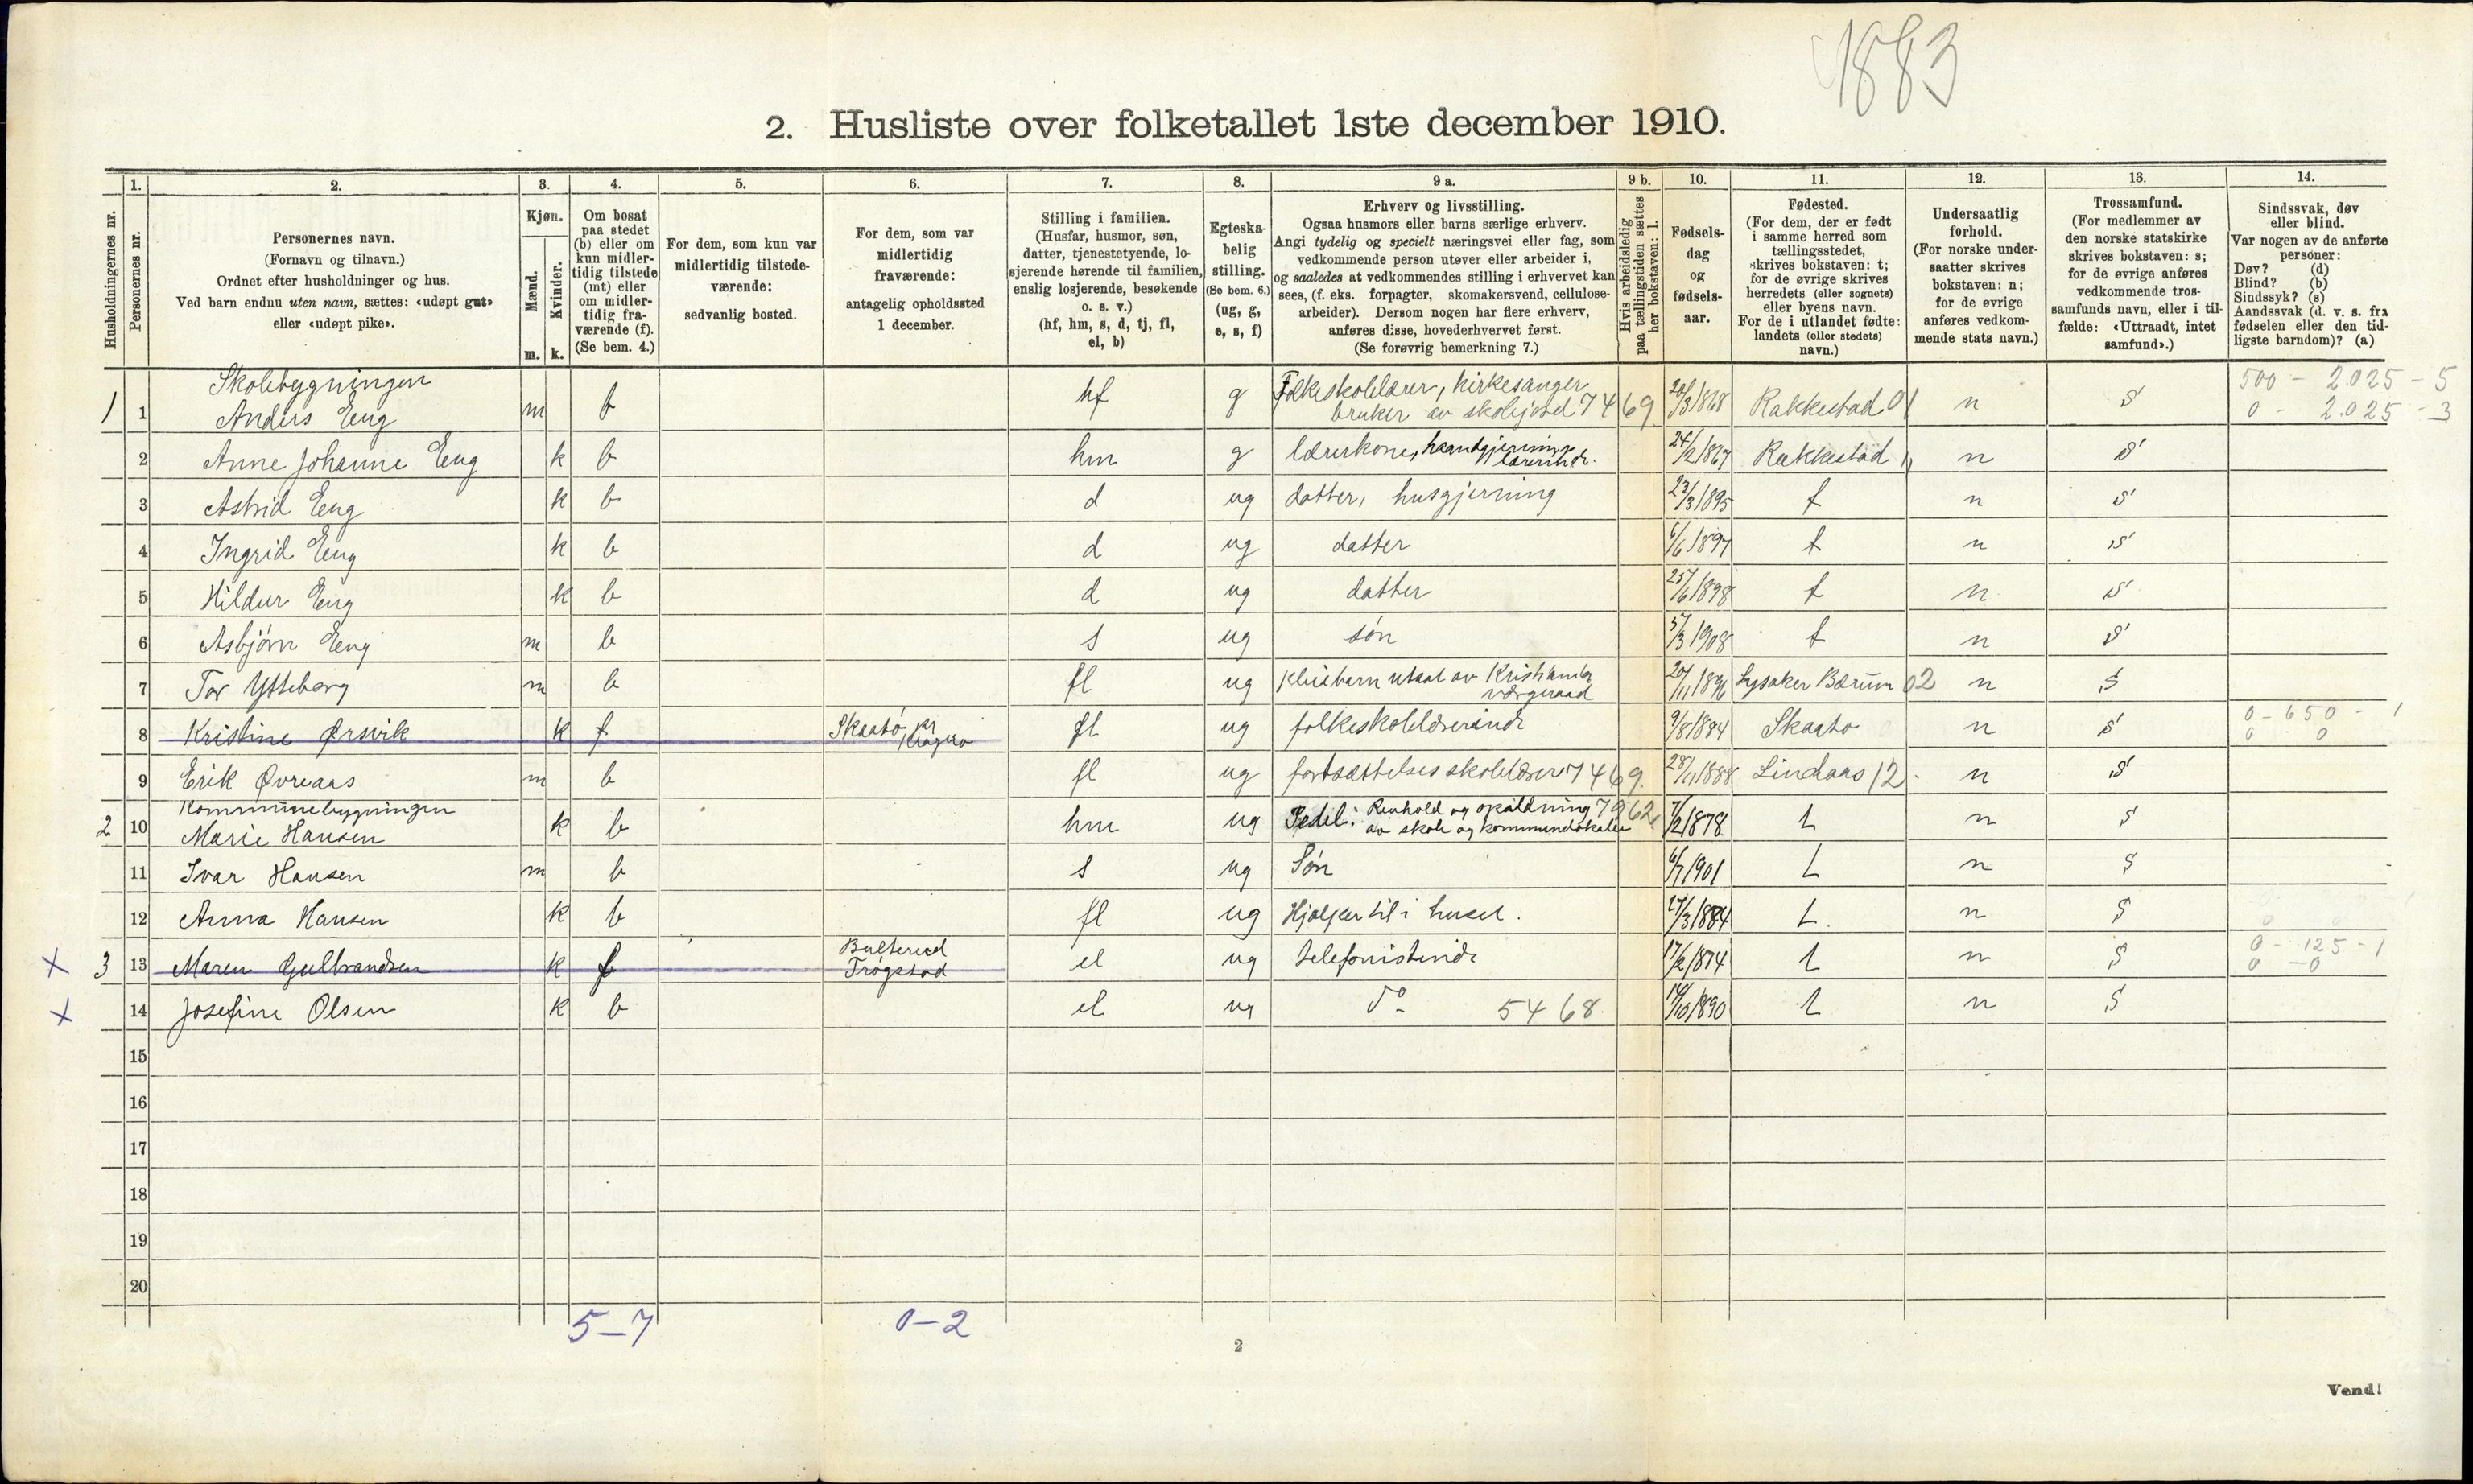 1883
2. Husliste over folketallet 1ste december 1910.
Husholdningernes nr.
1. Personernes nr.
2. Personernes navn.
(Fornavn og tilnavn.)
Ordnet efter husholdninger og hus.
Ved barn endnu uten navn, sættes: «udøpt gut»
eller «udøpt pike».
3. Kjøn.
Mænd. Kvinder.
m. k.
4. Om bosat
paa stedet
(b) eller om
kun midler-
tidig tilstede
(mt) eller
om midler-
tidig fra-
værende (f).
(Se bem. 4.)
5. For dem, som kun var
midlertidig tilstede-
værende:
sedvanlig bosted.
6. For dem, som var
midlertidig
fraværende:
antagelig opholdssted
1 december.
7. Stilling i familien.
(Husfar, husmor, søn,
datter, tjenestetyende, lo-
sjerende hørende til familien,
enslig losjerende, besøkende
o. s. v.)
(hf, hm, s, d, tj, fl,
el, b)
8. Egteska-
belig
stilling.
(Se bem. 6.)
(ug, g,
e, s, f)
9 a. Erhverv og livsstilling.
Ogsaa husmors eller barns særlige erhverv.
Angi tydelig og specielt næringsvei eller fag, som
vedkommende person utøver eller arbeider i,
og saaledes at vedkommendes stilling i erhvervet kan
sees, (f. eks. forpagter, skomakersvend, cellulose-
arbeider). Dersom nogen har flere erhverv,
anføres disse, hovederhvervet først.
(Se forøvrig bemerkning 7.)
9 b. Hvis arbeidsledig
paa tællingstiden sættes
her bokstaven: l.
10. Fødsels-
dag
og
fødsels-
aar.
11. Fødested.
(For dem, der er født
i samme herred som
tællingsstedet,
skrives bokstaven: t;
for de øvrige skrives
herredets (eller sognets)
eller byens navn.
For de i utlandet fødte:
landets (eller stedets)
navn.)
12. Undersaatlig
forhold.
(For norske under-
saatter skrives
bokstaven: n;
for de øvrige
anføres vedkom-
mende stats navn.)
13. Trossamfund.
(For medlemmer av
den norske statskirke
skrives bokstaven: s;
for de øvrige anføres
vedkommende tros-
samfunds navn, eller i til-
fælde: «Uttraadt, intet
samfund».)
14. Sindssvak, døv
eller blind.
Var nogen av de anførte
personer:
Døv? (d)
Blind? (b)
Sindssyk? (s)
Aandssvak (d. v. s. fra
fødselen eller den tid-
ligste barndom)? (a)
Skolebygningen Folkeskolelærer, kirkesanger 500 - 2.025 - 5
1 1 Anders Eeng m b hf g bruker av skolejord 7469 20/3 1868 Rakkestad 01 n s 0 - 2.025 - 3
2 Anne Johanne Eeng k b hm g lærerkone, haandgjernings 24/2 1867 Rakkestad n s
lærerinde.
3 Astrid Eeng k b d ug datter, husgjerning 23/3 1895 t n s
4 Ingrid Eeng k b d ug datter 6/6 1897 t n s
5 Hildur Eeng k b d ug datter 25/6 1898 t n s
6 Asbjørn Eeng m b s ug søn 5/3 1908 t n s
7 Tor Ytteborg m b fl ug Pleiebarn utsat av Kristiania 20/11 1896 Lysaker Bærum 02 n s
værgeraad
8 Kristine Ørsvik k f Skaatø pr Kragerø fl ug folkeskolelærerinde 9/8 1884 Skaatø n s 0 - 650 - 1
0 0
9 Erik Øvreaas m b fl ug fortsættelsesskolelærer 7469. 28/11 1888 Lindaas 12 n s
Kommunebygningen Renhold og opvldning 7962
2 10 Marie Hansen k b hm ug Pedel: av skole og kommunelokaler 7/2 1878 t n s
11 Ivar Hansen m b s ug Søn 6/7 1901 t n s
12 Anna Hansen k b fl ug Hjælper til i huset. 27/3 1884 t. n s
Bulterud
X 3 13 Maren Gulbrandsen k f Trøgstad el ug telefonistinde 17/2 1874 t n s 0 - 125 - 1
0 - 0
X 14 Josefine Olsen k b el ug do 5468 14/10 1890 t n s
15
16
17
18
19
20
5-7 0-2
2
Vend!